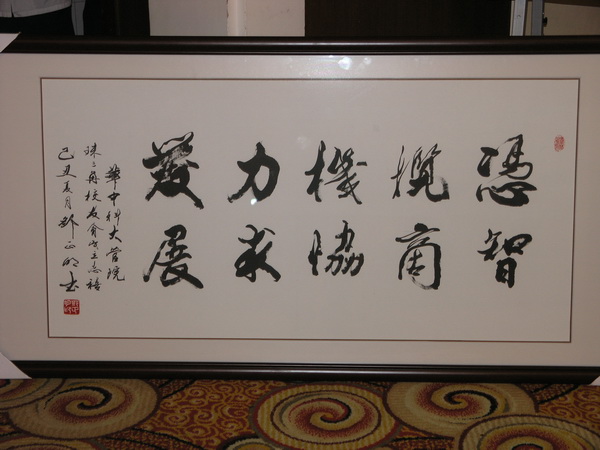 憑智
攬商
機協
力求
發展
華中科大管院
珠三角校友會成立志禧
己丑夏月鄧正明书